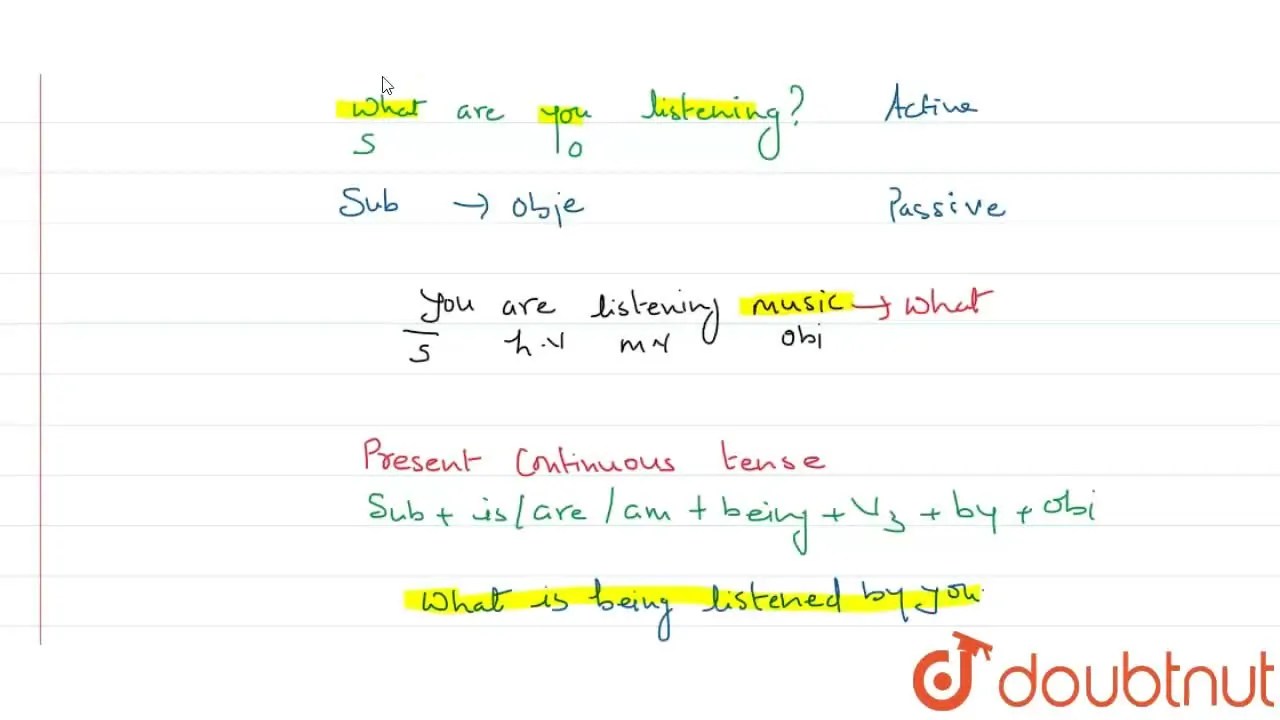 What are you listening? Active
S O
Sub → Obje Passive
You are listening music → What
S h.v m v Obj
Present Continuous tense
Sub + is/are/am + being + V3 + by + Obj
What is being listened by you.
doubtnut